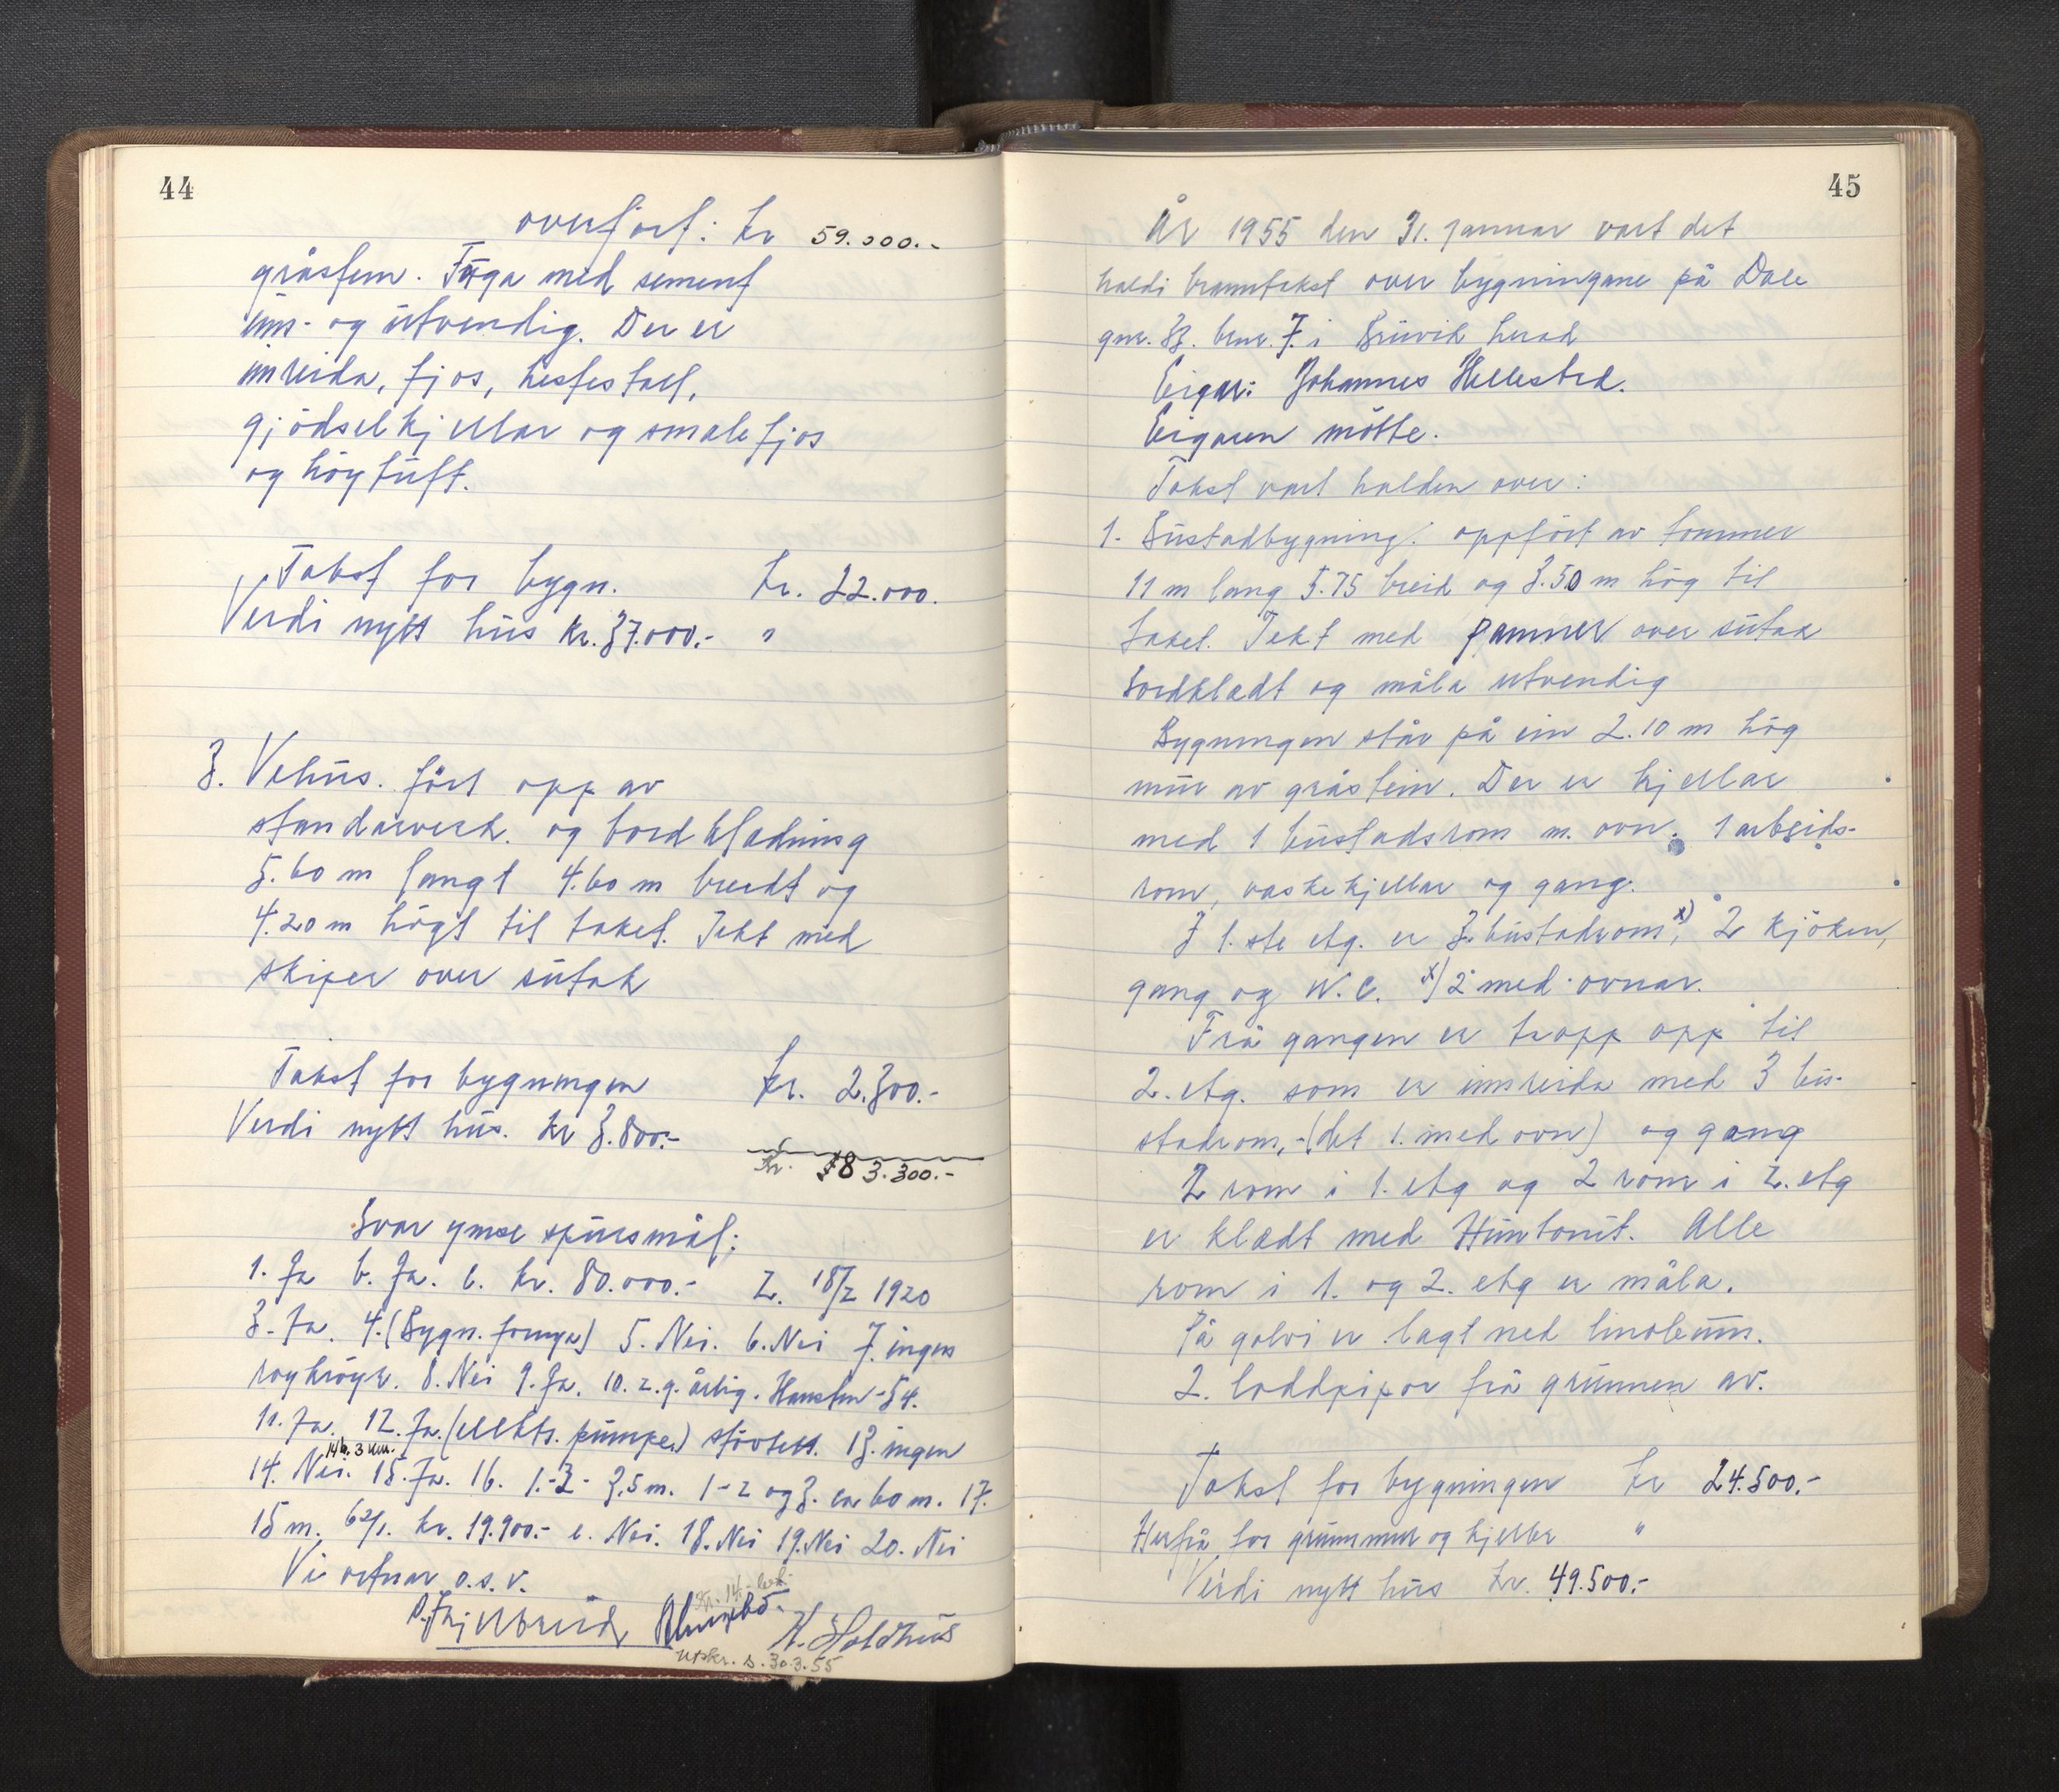 44
overført: kr 59.000.-
gråstein. Fuga med sement
inn- og utvendig. Der er
innreida, fjos, hestestall,
gjødselkjellar og smalefjos
og høytuft.
Takst for bygn. kr. 22.000.
Verdi nytt hus kr. 37.000.- "
3. Vehus. ført opp av
standarverk. og bordkledning
5.60 m langt 4.60 m breidt og
4.20 m høgt til taket. Tekt med
skifer over sutak
Takst for bygningen kr. 2.300.-
Verdi nytt hus. kr 3.800.-
kr. 83.300.-
Svar ymse spursmål:
1. Ja b. Ja. c. kr. 80.000.- 2. 18/2 1920
3. Ja. 4. (Bygn. fornya) 5. Nei. 6. Nei 7. ingen
røykrøyr. 8. Nei 9. Ja. 10. 2.g. årlig. Hausten -54.
11. Ja. 12. Ja. (elektr. pumper) støvtett. 13. ingen
14. Nei. 14b. 3 km. 15. Ja. 16. 1.-2- 3,5 m. 1-2 og 3. ca 60 m. 17.
15 m. kr. 19.900.- c. Nei. 18. Nei 19. Nei 20. Nei
Vi vitnar o.s.v.
H. Holdhus
utskr. s. 30.3.55
45
År 1955 den 31. januar vart det
haldi branntakst over bygningane på Dale
gnr. 33. bnr. 7. i Bruvik herad
Eigar: Johannes Hellestad.
Eigaren møtte.
Takst vart halden over:
1. Bustadbygning: oppført av tømmer
11 m lang 5.75 breid og 3.50 m høg til
taket. Tekt med panner over sutak
bordkledt og måla utvendig
Bygningen står på ein 2.10 m høg
mur av gråstein. Der er kjellar
med 1 bustadsrom m. ovn. 1 arbeids-
rom, vaskekjellar og gang.
I 1.ste etg. er 3. bustadrom x), 2 kjøken,
gang og W.C. x) 2 med ovnar.
Frå gangen er tropp opp til
2. etg. som er innreida med 3 bu-
stadrom, - (det 1. med ovn) og gang
2 rom i 1. etg og 2 rom i 2. etg
er kledt med Huntonit. Alle
rom i 1. og 2. etg er måla.
På golvi er lagt ned linoleum.
2. loddpipor frå grunnen av.
Takst for bygningen kr 24.500.-
Herfrå for grunnmur og kjeller "
Verdi nytt hus kr. 49.500.-